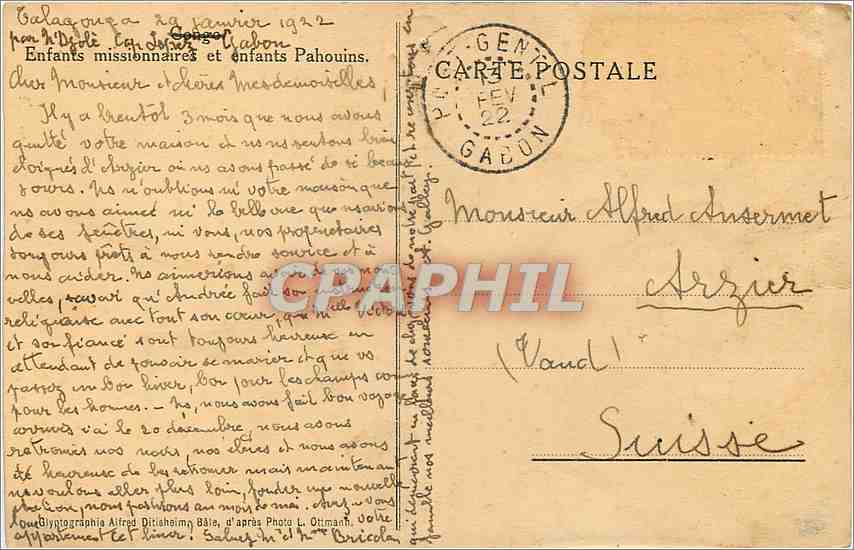 Talagouga 29 janvier 1922
par N'Djolé Cap Lopez Gabon
Congo
Enfants missionnaires et enfants Pahouins.
Cher Monsieur et chères Mesdemoiselles,
Il y a bientôt 3 mois que nous avons
quitté votre maison et ns ns sentons bien
éloignés d'Arzier où ns avons passé de si beaux
jours. Ns n'oublions ni votre maison que
ns avons aimée ni la belle vue que ns avions
de ses fenêtres, ni vous, nos propriétaires
toujours prêts à nous rendre service et à
nous aider. Ns aimerions avoir de vos nou
velles, savoir qu'Andrée fait son
religieuse avec tout son cœur, que Mlle
et son fiancé sont toujours heureux en
attendant de pouvoir se marier et que vs
passez un bon hiver, bon pour les champs comme
pour les hommes. — Ns, nous avons fait bon voyage
arrivés ici le 20 décembre, nous avons
retrouvé nos noirs, nos élèves et nous avons
été heureux de les retrouver mais maintenant
ns voulons aller plus loin, fonder une nouvelle
station, nous partirons au mois de mai. Avez-vous
loué votre
appartement cet hiver. Saluez Mr et Mme Bricolan
qui demeurent en face de chez vous de notre part et recevez tous en
famille nos meilleurs
Glyptographie Alfred Ditisheim, Bâle, d'après Photo L. Ottmann.
CARTE POSTALE
PORT-GENTIL
13
FEV
22
GABON
CPAPHIL
Monsieur Alfred Ansermet
Arzier
(Vaud)
Suisse